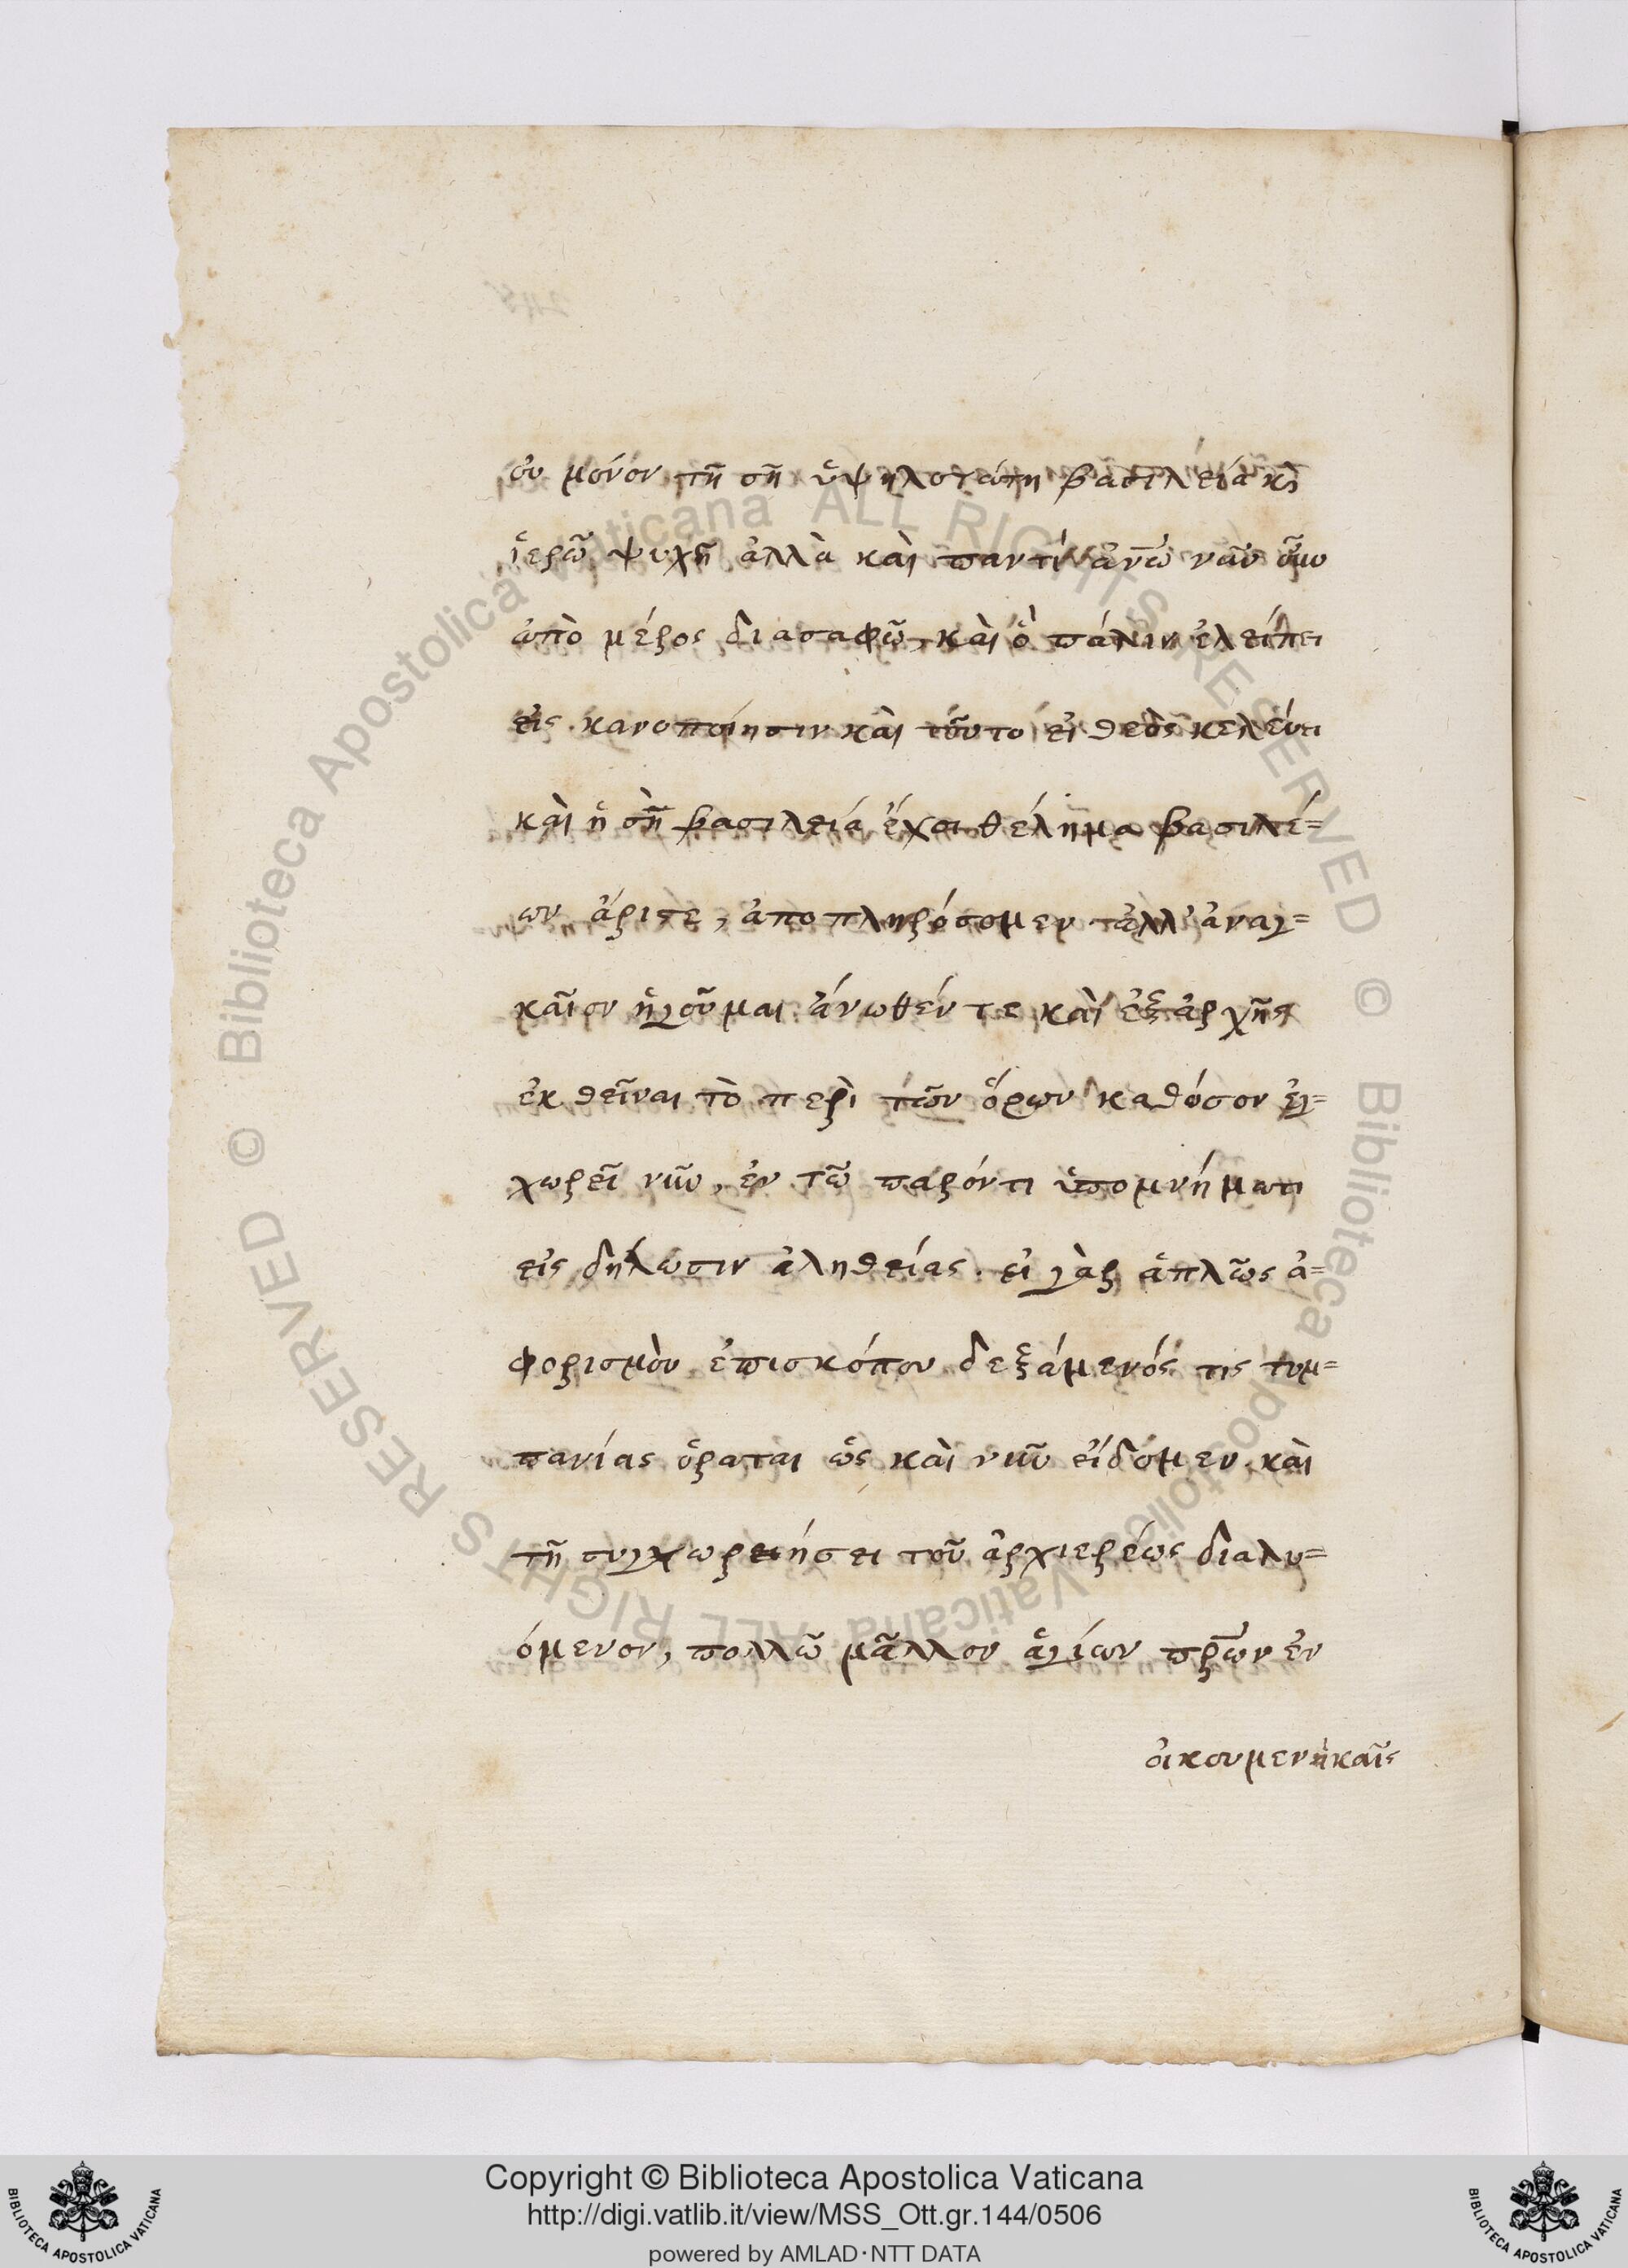 οὐ μόνον τῆ σῆ ὑψηλοτάτη βασιλεία κ̀
ἱερῶ ψυχῆ ἀλλὰ καὶ παντὶ ἀν̅ω νῦν
ἀπὸ μέρος διασαφῶ, καὶ ὃ πάλιν ἐλείπει
εἰς καινοποίησιν καὶ τοῦτο εἰ θεὸς κελεύει
καὶ ἡ σὴ βασιλεία ἔχει θέλημα βασιλέ=
ων ἄριστε, ἀποπληρόσομεν τἀλλ' ἀναγ=
καῖον ἡγοῦμαι ἄνωθέν τε καὶ ἐξἀρχῆς
ἐκθεῖναι τὸ περὶ τῶν ὅρων καθόσον ἐγ=
χωρεῖ νῦν, ἐν τῶ παρόντι ὑπομνήματι
εἰς δήλωσιν ἀληθείας. εἰ γὰρ ἁπλῶς ἀ=
φορισμὸν ἐπισκόπου δεξάμενός τις τυμ=
πανίας ὁρᾶται ὡς καὶ νῦν εἴδομεν καὶ
τῆ συγχωρειήσει τοῦ ἀρχιερέως διαλυ=
όμενον, πολλῶ μᾶλλον ἁγίων πρ̅ων ἐν
οἰκουμενηκαῖς
Copyright © Biblioteca Apostolica Vaticana
http://digi.vatlib.it/view/MSS_Ott.gr.144/0506
powered by AMLAD·NTT DATA
BIBLIOTECA APOSTOLICA VATICANA
BIBLIOTECA APOSTOLICA VATICANA
© Biblioteca Apostolica Vaticana ALL RIGHTS RESERVED © Biblioteca Apostolica Vaticana ALL RIGHTS RESERVED